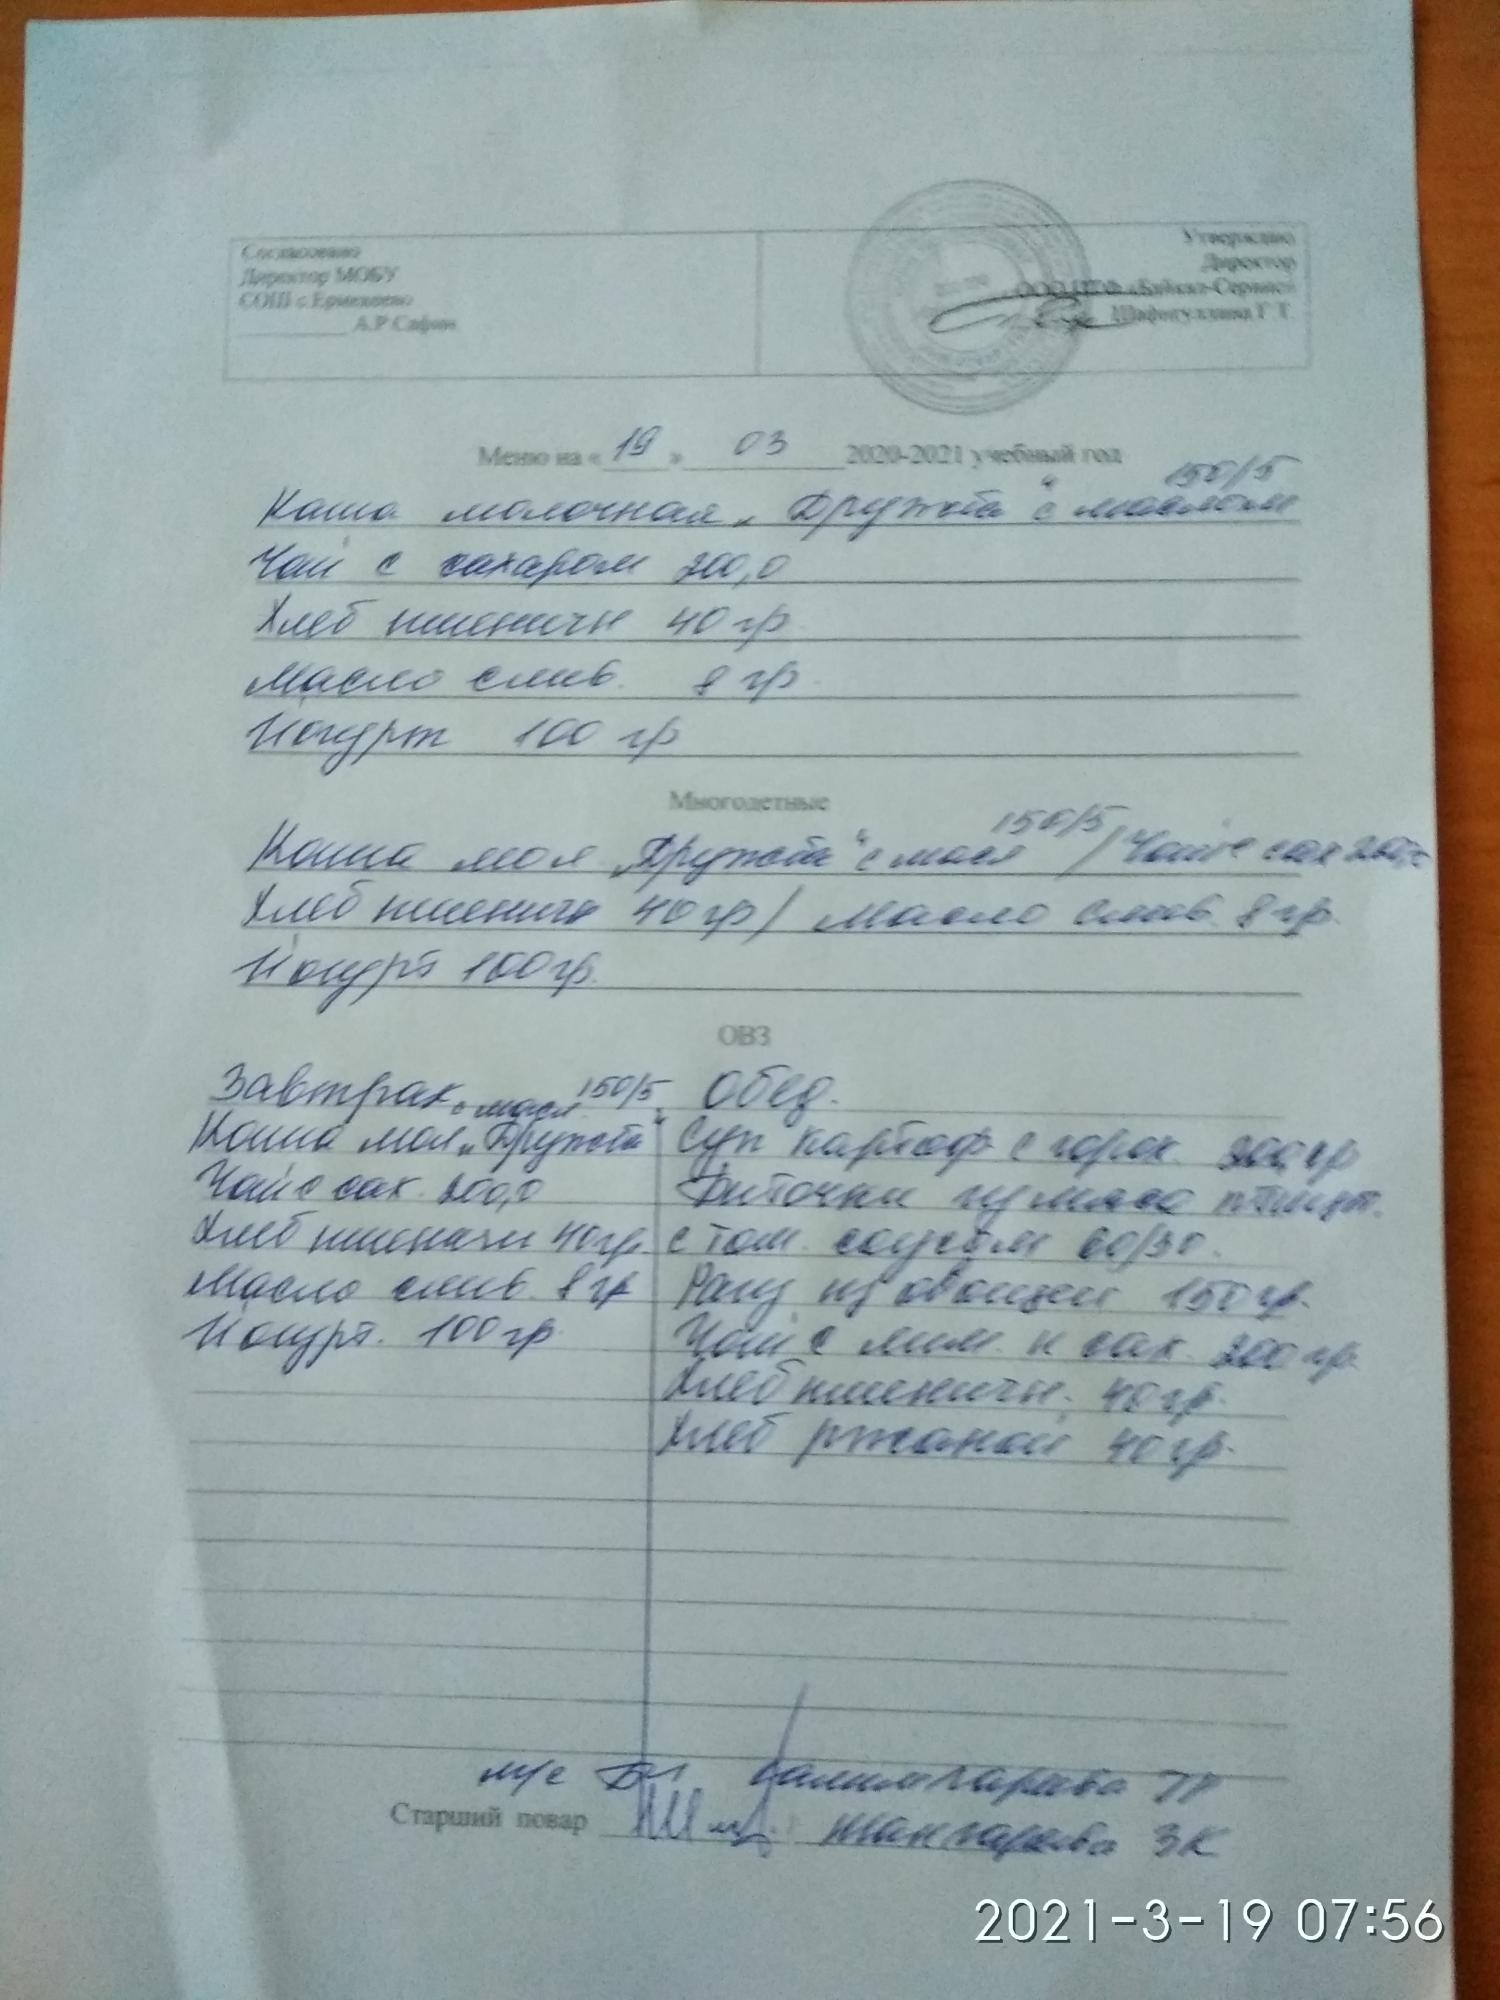 Согласовано
Директор МОБУ
СОШ с Ермекеево
А.Р Сафин
Утверждаю
Директор
ООО «Байкал-Сервис»
Шафигуллина Г Т
Меню на « 19 » 03 2020-2021 учебный год
150/5
Каша молочная „Дружба“ с маслом
Чай с сахаром 200,0
Хлеб пшеничн 40 гр.
Масло слив. 8 гр.
Йогурт 100 гр
Многодетные
150/5
Каша мол „Дружба“ с масл / Чай с сах 200,0
Хлеб пшеничн 40 гр / Масло слив. 8 гр.
Йогурт 100 гр.
ОВЗ
Завтрак с масл 150/5
Каша мол „Дружба“
Чай с сах. 200,0
Хлеб пшеничн 40 гр.
Масло слив. 8 гр
Йогурт. 100 гр.
Обед.
Суп картоф с горох. 200 гр
Биточки из мяса птицы.
с том. соусом 60/30.
Рагу из овощей 150 гр.
Чай с лим. и сах. 200 гр.
Хлеб пшеничн. 40 гр.
Хлеб ржаной 40 гр.
м/с ТР
Старший повар Жангарева ЗК
2021-3-19 07:56